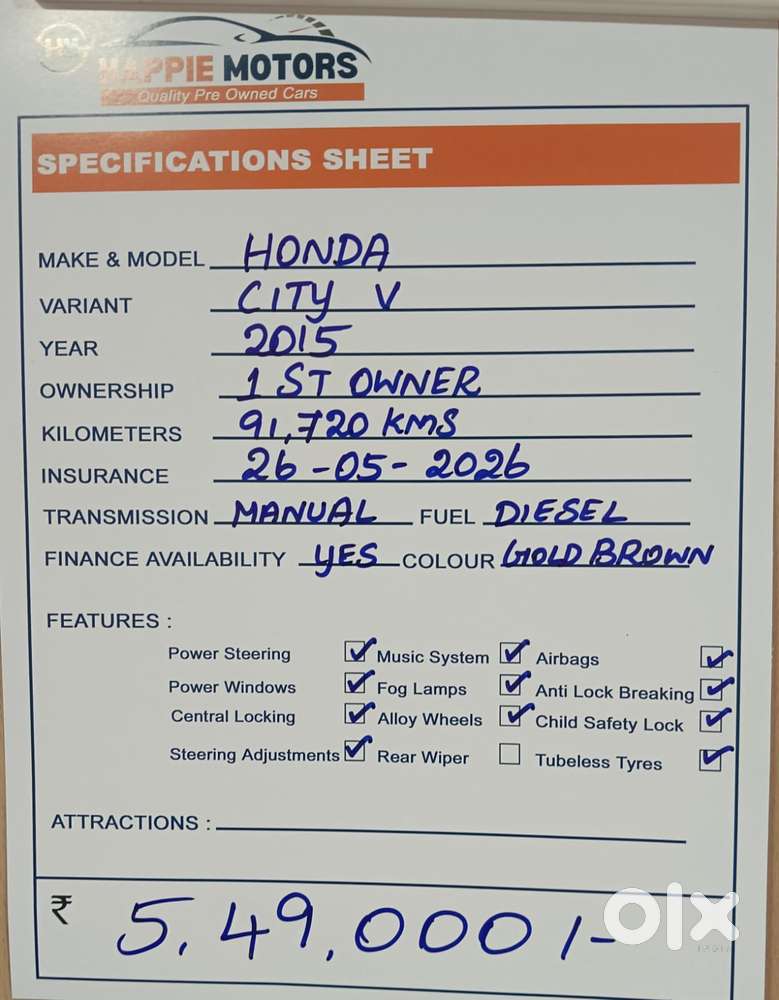 HAPPIE MOTORS
Quality Pre Owned Cars
SPECIFICATIONS SHEET
MAKE & MODEL HONDA
VARIANT CITY V
YEAR 2015
OWNERSHIP 1 ST OWNER
KILOMETERS 91,720 KMS
INSURANCE 26-05-2026
TRANSMISSION MANUAL FUEL DIESEL
FINANCE AVAILABILITY YES COLOUR GOLD BROWN
FEATURES :
Power Steering Music System Airbags
Power Windows Fog Lamps Anti Lock Breaking
Central Locking Alloy Wheels Child Safety Lock
Steering Adjustments Rear Wiper Tubeless Tyres
ATTRACTIONS :
₹ 5,49,000/-
olx
INDIA